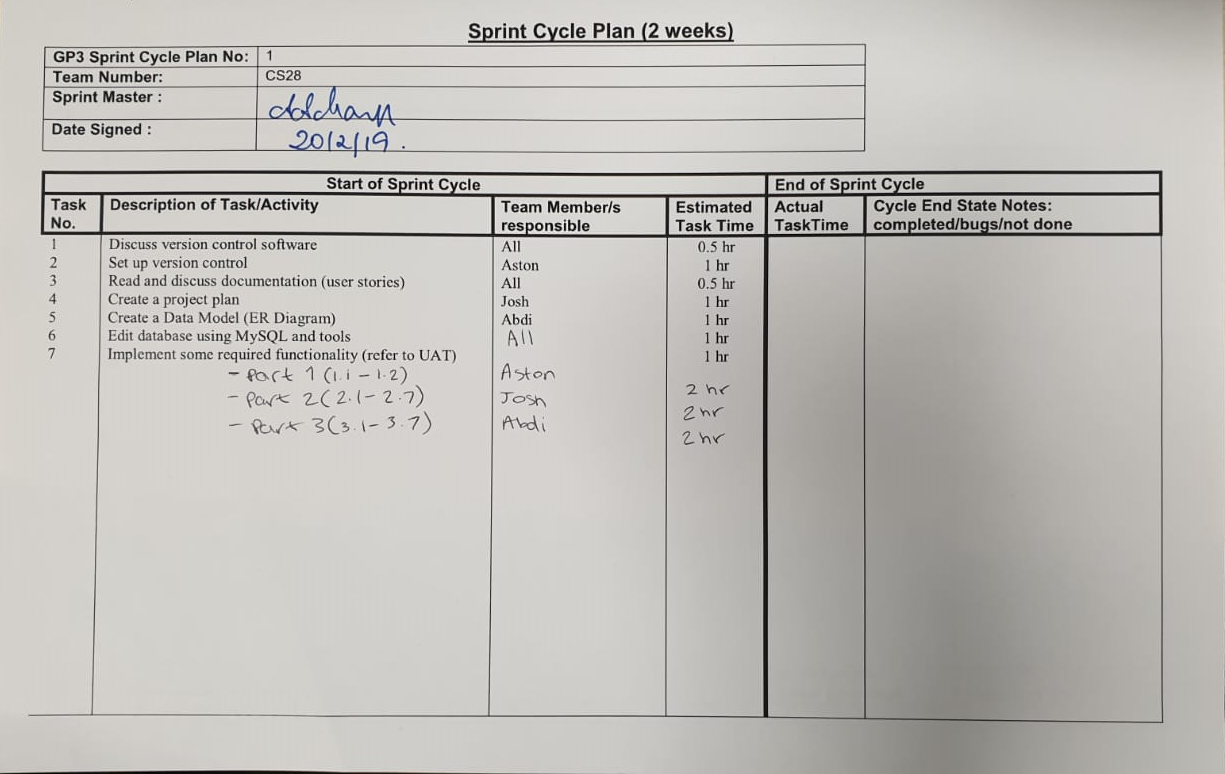 Sprint Cycle Plan (2 weeks)
GP3 Sprint Cycle Plan No: 1
Team Number: CS28
Sprint Master :
Date Signed : 20/2/19.
Start of Sprint Cycle End of Sprint Cycle
Task No. Description of Task/Activity Team Member/s responsible Estimated Task Time Actual TaskTime Cycle End State Notes: completed/bugs/not done
1 Discuss version control software All 0.5 hr
2 Set up version control Aston 1 hr
3 Read and discuss documentation (user stories) All 0.5 hr
4 Create a project plan Josh 1 hr
5 Create a Data Model (ER Diagram) Abdi 1 hr
6 Edit database using MySQL and tools All 1 hr
7 Implement some required functionality (refer to UAT) 1 hr
- Part 1 (1.1 - 1.2) Aston 2 hr
- Part 2 (2.1 - 2.7) Josh 2 hr
- Part 3 (3.1 - 3.7) Abdi 2 hr